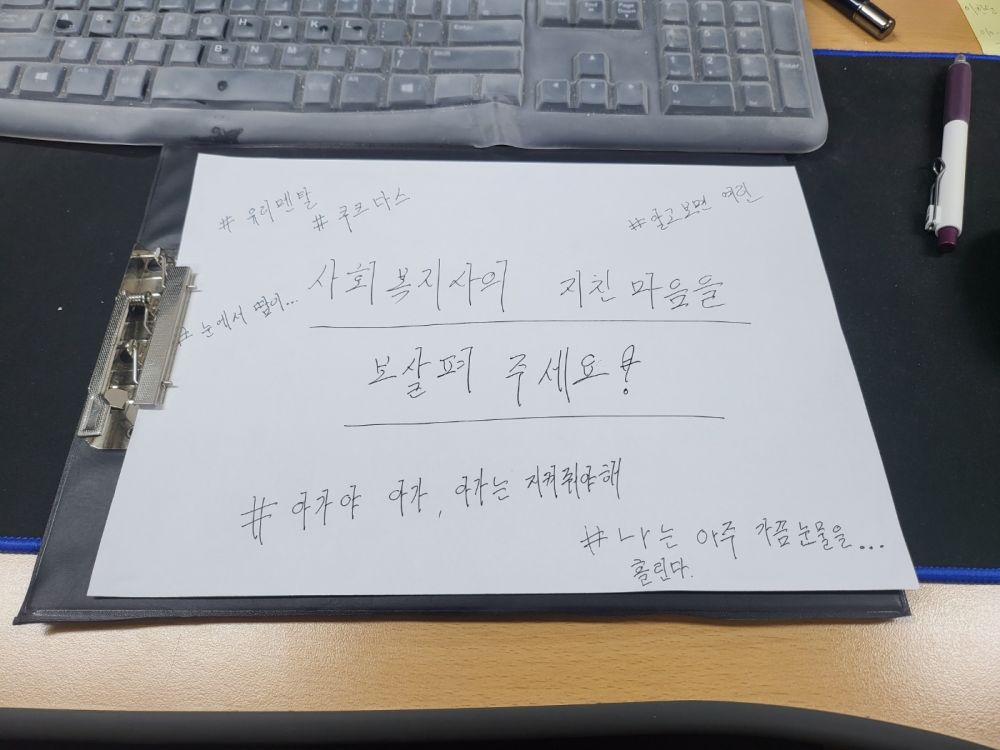 # 유리멘탈
# 쿠크다스
# 알고보면 여린
# 눈에서 땀이...
사회복지사의 지친 마음을
보살펴 주세요!
# 아가야 아가, 아가는 지켜줘야해
# 나는 아주 가끔 눈물을...
흘린다.